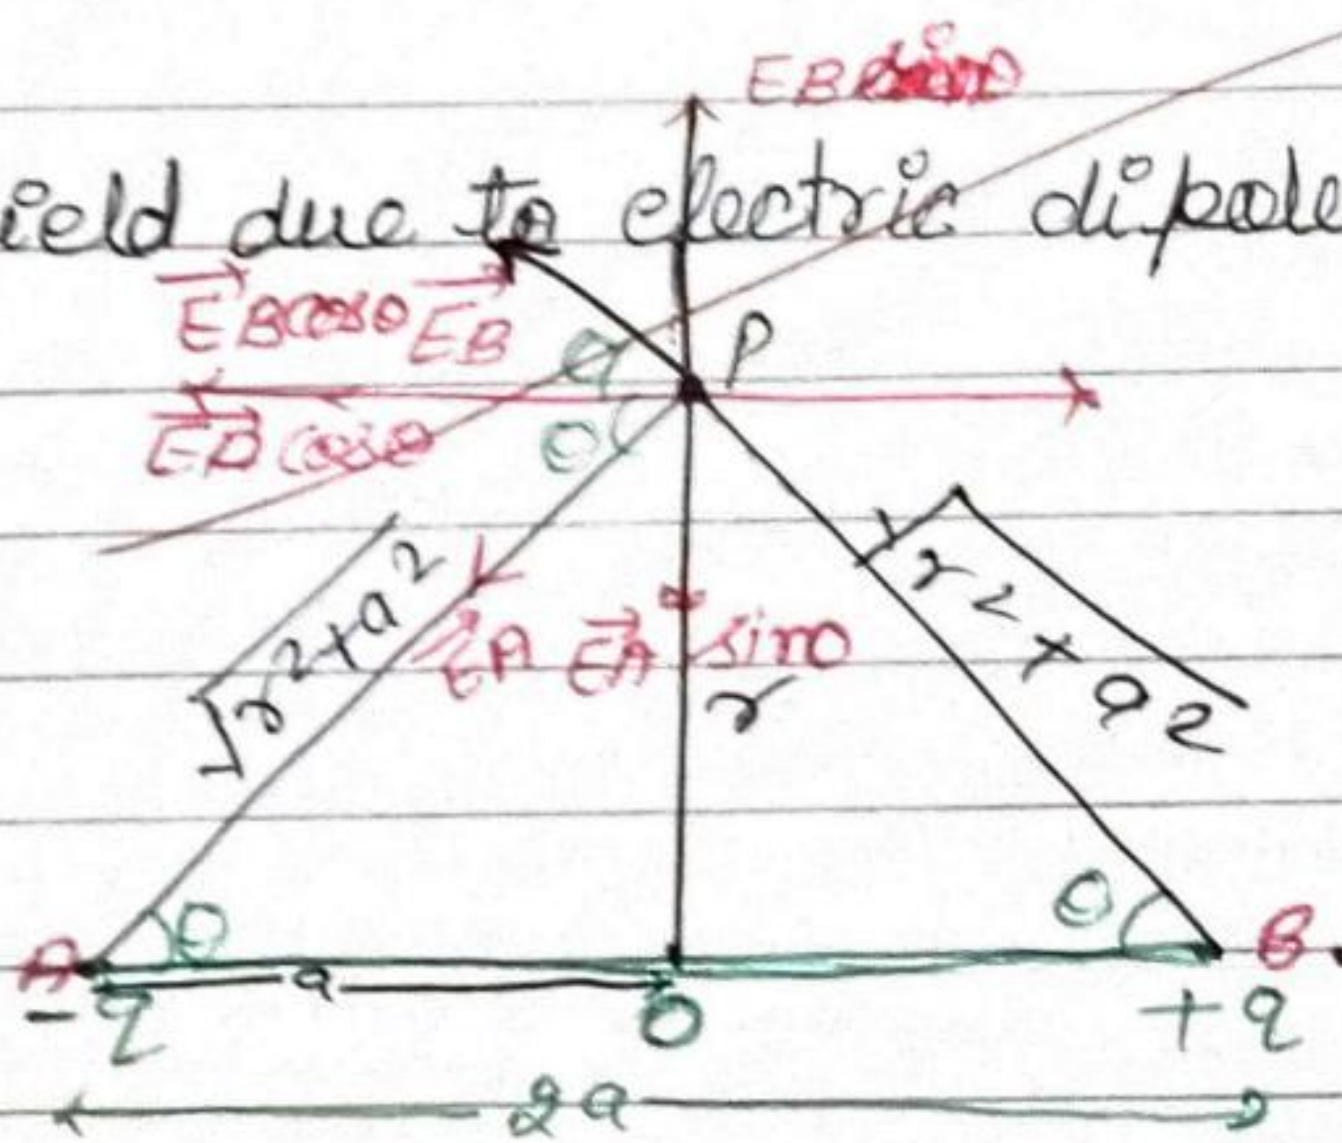 EB sinθ
ield due to electric dipole
EB cosθ EB
θ P
EB cosθ
θ
√r2+a2
√r2+a2
EA EA sinθ
r
θ θ
A B
a
-q O +q
2a